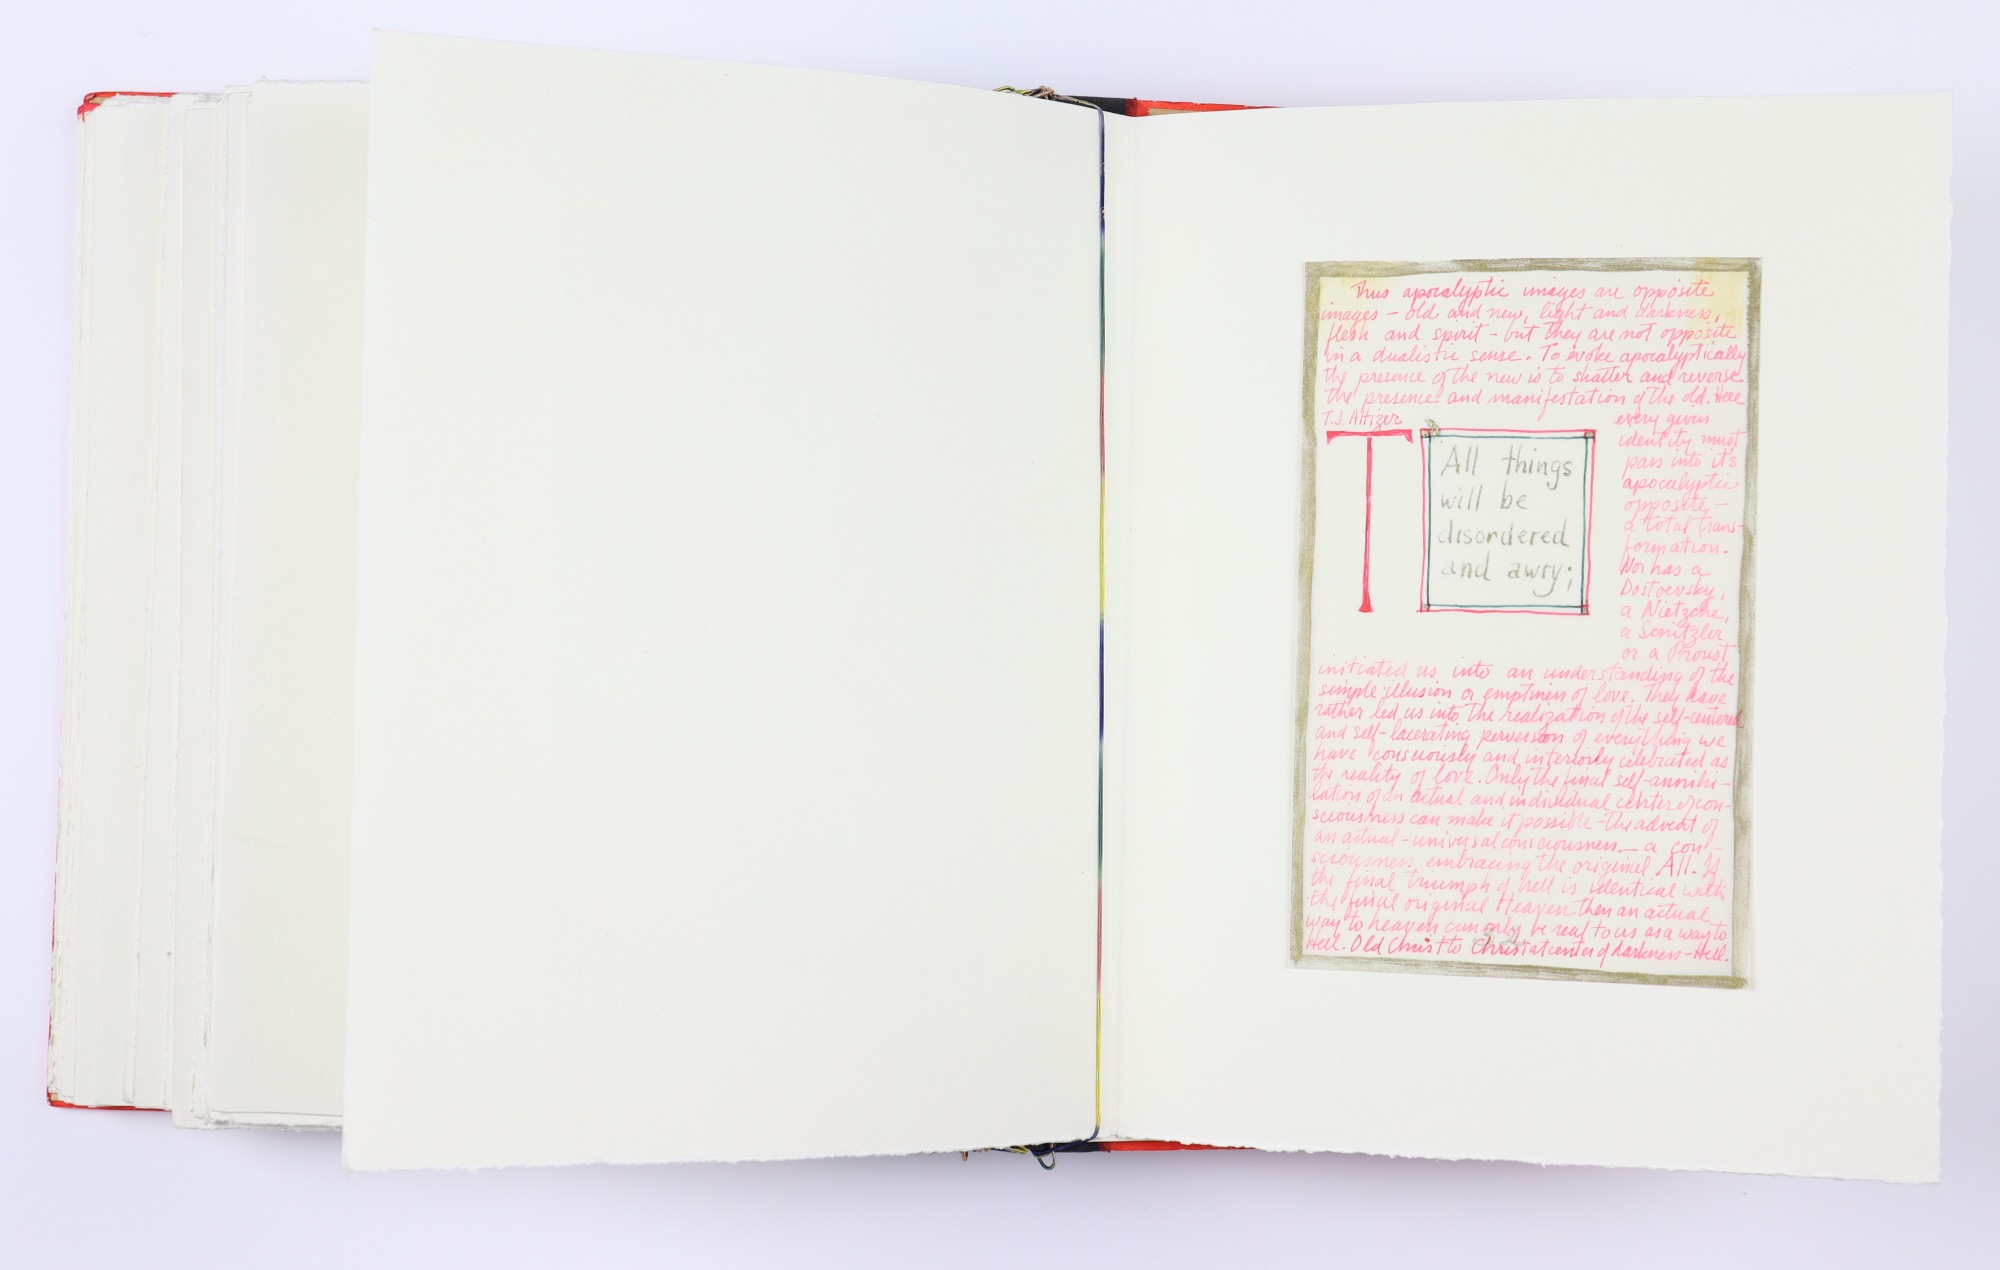 Thus apocalyptic images are opposite
images – old and new, light and darkness,
flesh and spirit – but they are not opposite
in a dualistic sense. To evoke apocalyptically
the presence of the new is to shatter and reverse
the presence and manifestation of the old. Here
T.J. Altizer
every given
identity must
pass into it's
apocalyptic
opposite –
a total trans-
formation.
Nor has a
Dostoevsky,
a Nietzche,
a Scnitzler
or a Proust
T
All things
will be
disordered
and awry;
initiated us into an understanding of the
simple illusion or emptiness of love. They have
rather led us into the realization of the self-centered
and self-lacerating perversion of everything we
have consciously and interiorly celebrated as
the reality of love. Only the final self-annihi-
lation of an actual and individual center of con-
sciousness can make it possible – the advent of
an actual – universal consciousness – a con-
sciousness embracing the original All. If
the final triumph of hell is identical with
the final original Heaven then an actual
way to heaven can only be real to us as a way to
Hell. Old Christ to Christ at center of darkness – Hell.